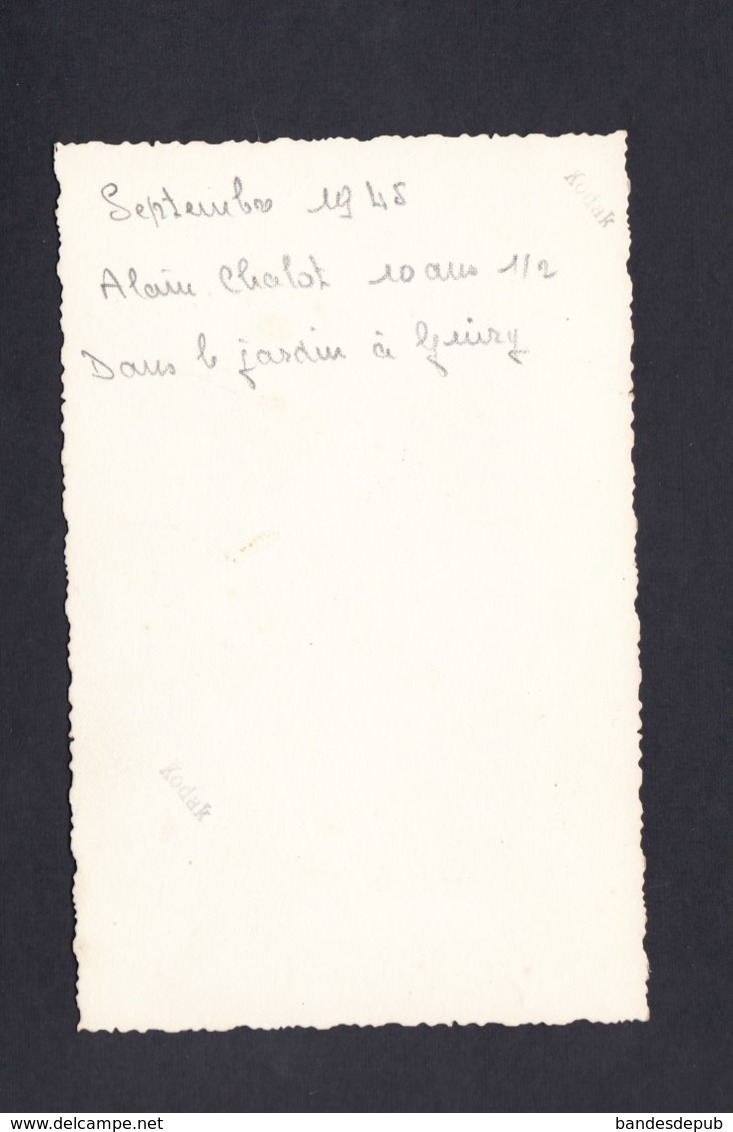 Kodak
Septembre 1945
Alain Chalot 10 ans 1/2
Dans le jardin à
Kodak
delcampe.net
bandesdepub